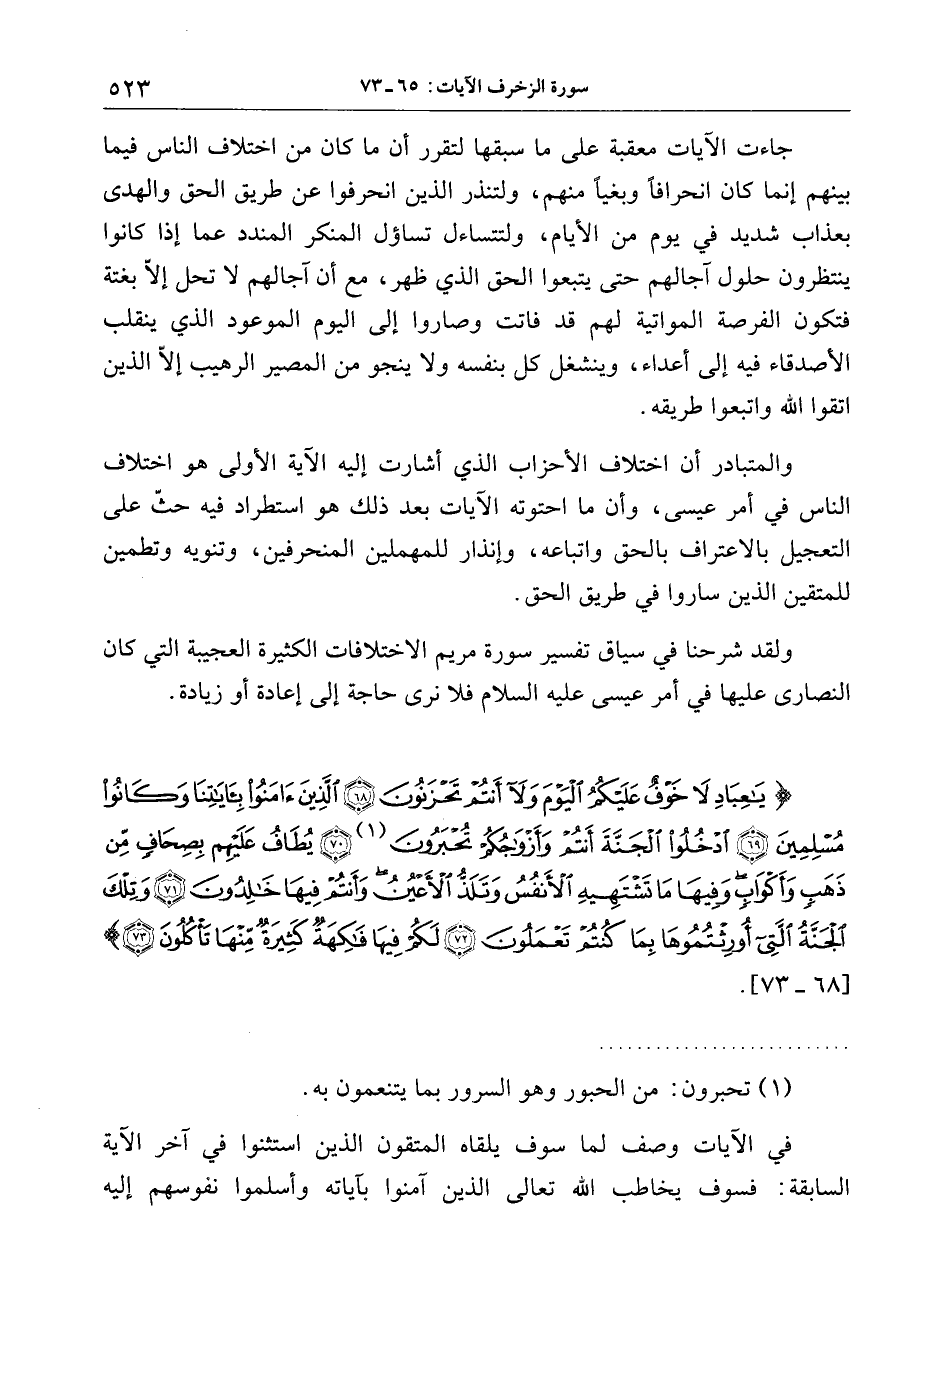 سورة الزخرف الآيات: ٦٥ـ٧٣ ٥٢٣
جاءت الآيات معقبة على ما سبقها لتقرر أن ما كان من اختلاف الناس فيما
بينهم إنما كان انحرافاً وبغياً منهم، ولتنذر الذين انحرفوا عن طريق الحق والهدى
بعذاب شديد في يوم من الأيام، ولتتساءل تساؤل المنكر المندد عما إذا كانوا
ينتظرون حلول آجالهم حتى يتبعوا الحق الذي ظهر، مع أن آجالهم لا تحل إلاّ بغتة
فتكون الفرصة المواتية لهم قد فاتت وصاروا إلى اليوم الموعود الذي ينقلب
الأصدقاء فيه إلى أعداء، وينشغل كل بنفسه ولا ينجو من المصير الرهيب إلاّ الذين
اتقوا الله واتبعوا طريقه.
والمتبادر أن اختلاف الأحزاب الذي أشارت إليه الآية الأولى هو اختلاف
الناس في أمر عيسى، وأن ما احتوته الآيات بعد ذلك هو استطراد فيه حثّ على
التعجيل بالاعتراف بالحق واتباعه، وإنذار للمهملين المنحرفين، وتنويه وتطمين
للمتقين الذين ساروا في طريق الحق.
ولقد شرحنا في سياق تفسير سورة مريم الاختلافات الكثيرة العجيبة التي كان
النصارى عليها في أمر عيسى عليه السلام فلا نرى حاجة إلى إعادة أو زيادة.
﴿ يَٰعِبَادِ لَا خَوْفٌ عَلَيْكُمُ ٱلْيَوْمَ وَلَآ أَنتُمْ تَحْزَنُونَ ۝٦٨ ٱلَّذِينَ ءَامَنُوا۟ بِـَٔايَٰتِنَا وَكَانُوا۟
مُسْلِمِينَ ۝٦٩ ٱدْخُلُوا۟ ٱلْجَنَّةَ أَنتُمْ وَأَزْوَٰجُكُمْ تُحْبَرُونَ (١) ۝٧٠ يُطَافُ عَلَيْهِم بِصِحَافٍ مِّن
ذَهَبٍ وَأَكْوَابٍ ۖ وَفِيهَا مَا تَشْتَهِيهِ ٱلْأَنفُسُ وَتَلَذُّ ٱلْأَعْيُنُ ۖ وَأَنتُمْ فِيهَا خَٰلِدُونَ ۝٧١ وَتِلْكَ
ٱلْجَنَّةُ ٱلَّتِىٓ أُورِثْتُمُوهَا بِمَا كُنتُمْ تَعْمَلُونَ ۝٧٢ لَكُمْ فِيهَا فَٰكِهَةٌ كَثِيرَةٌ مِّنْهَا تَأْكُلُونَ ۝٧٣ ﴾
[٦٨ ـ ٧٣].
(١) تحبرون: من الحبور وهو السرور بما يتنعمون به.
في الآيات وصف لما سوف يلقاه المتقون الذين استثنوا في آخر الآية
السابقة: فسوف يخاطب الله تعالى الذين آمنوا بآياته وأسلموا نفوسهم إليه